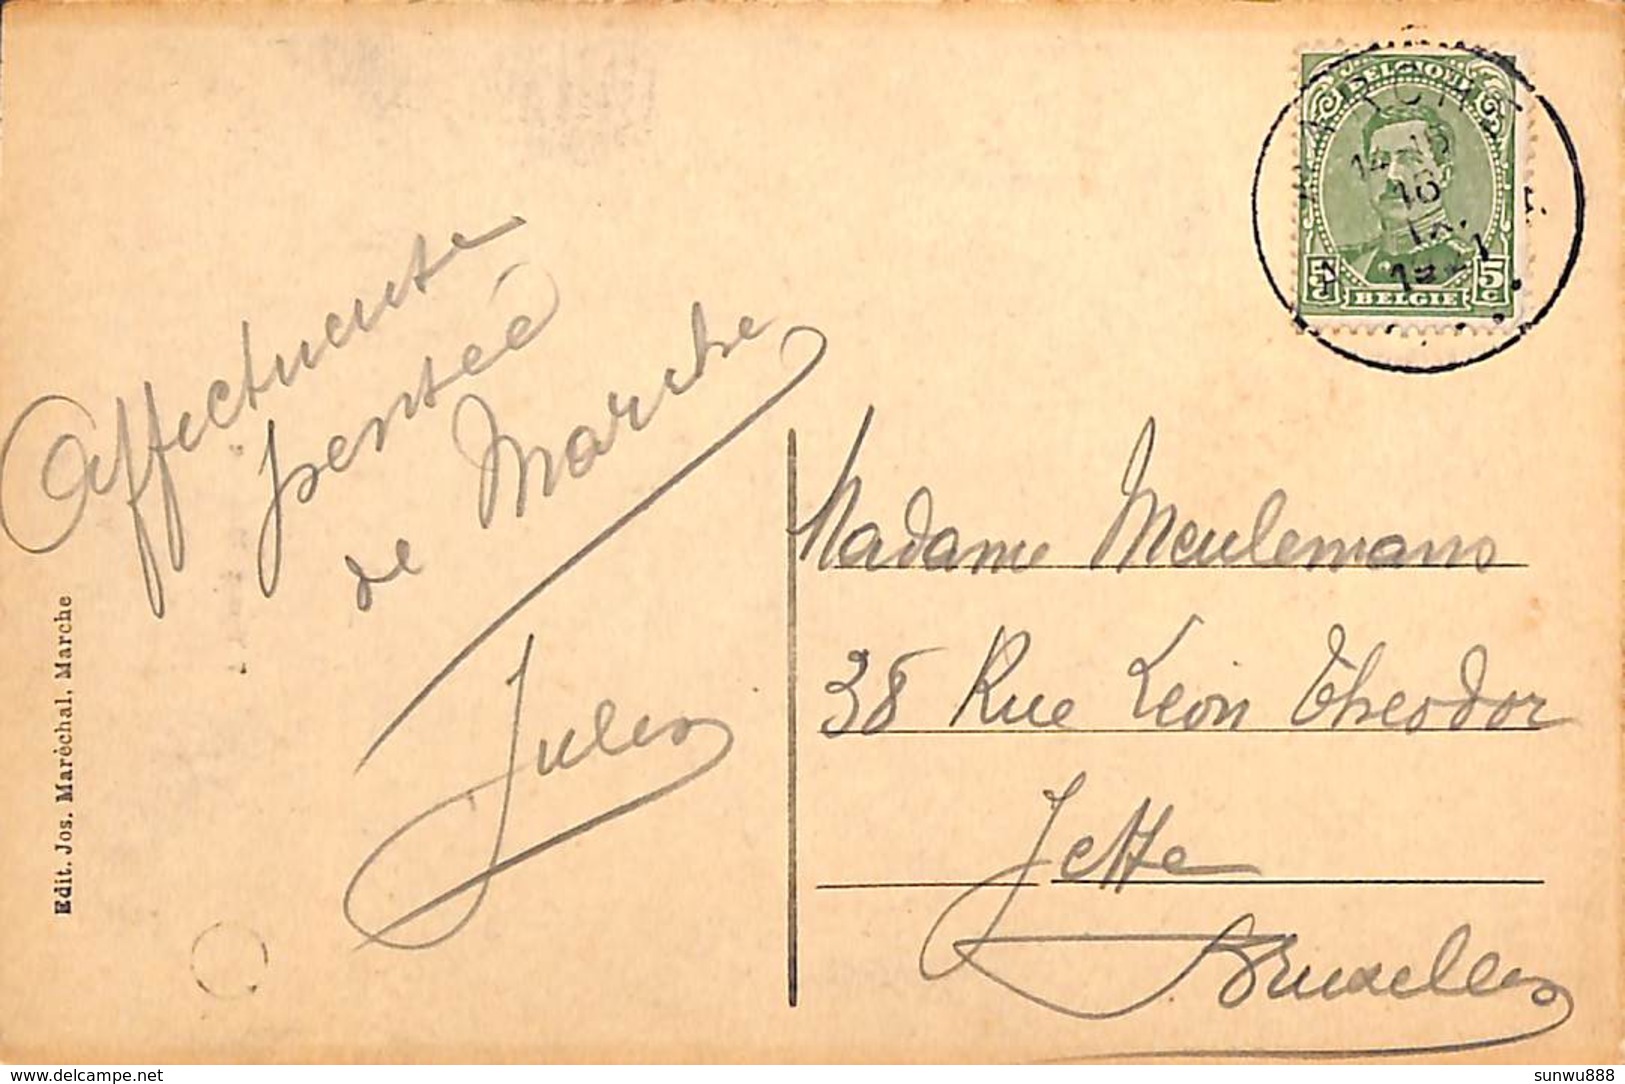 Affectueute
pensteé
de Marche
Jules
Edit. Jos. Maréchal, Marche
BELGIQUE
MARCHE
14-15
10
IX
1921
5c
BELGIE
5c
Madame Meulemans
38 Rue Léon Theodor
Jette
Bruxelles
delcampe.net
sunwu888